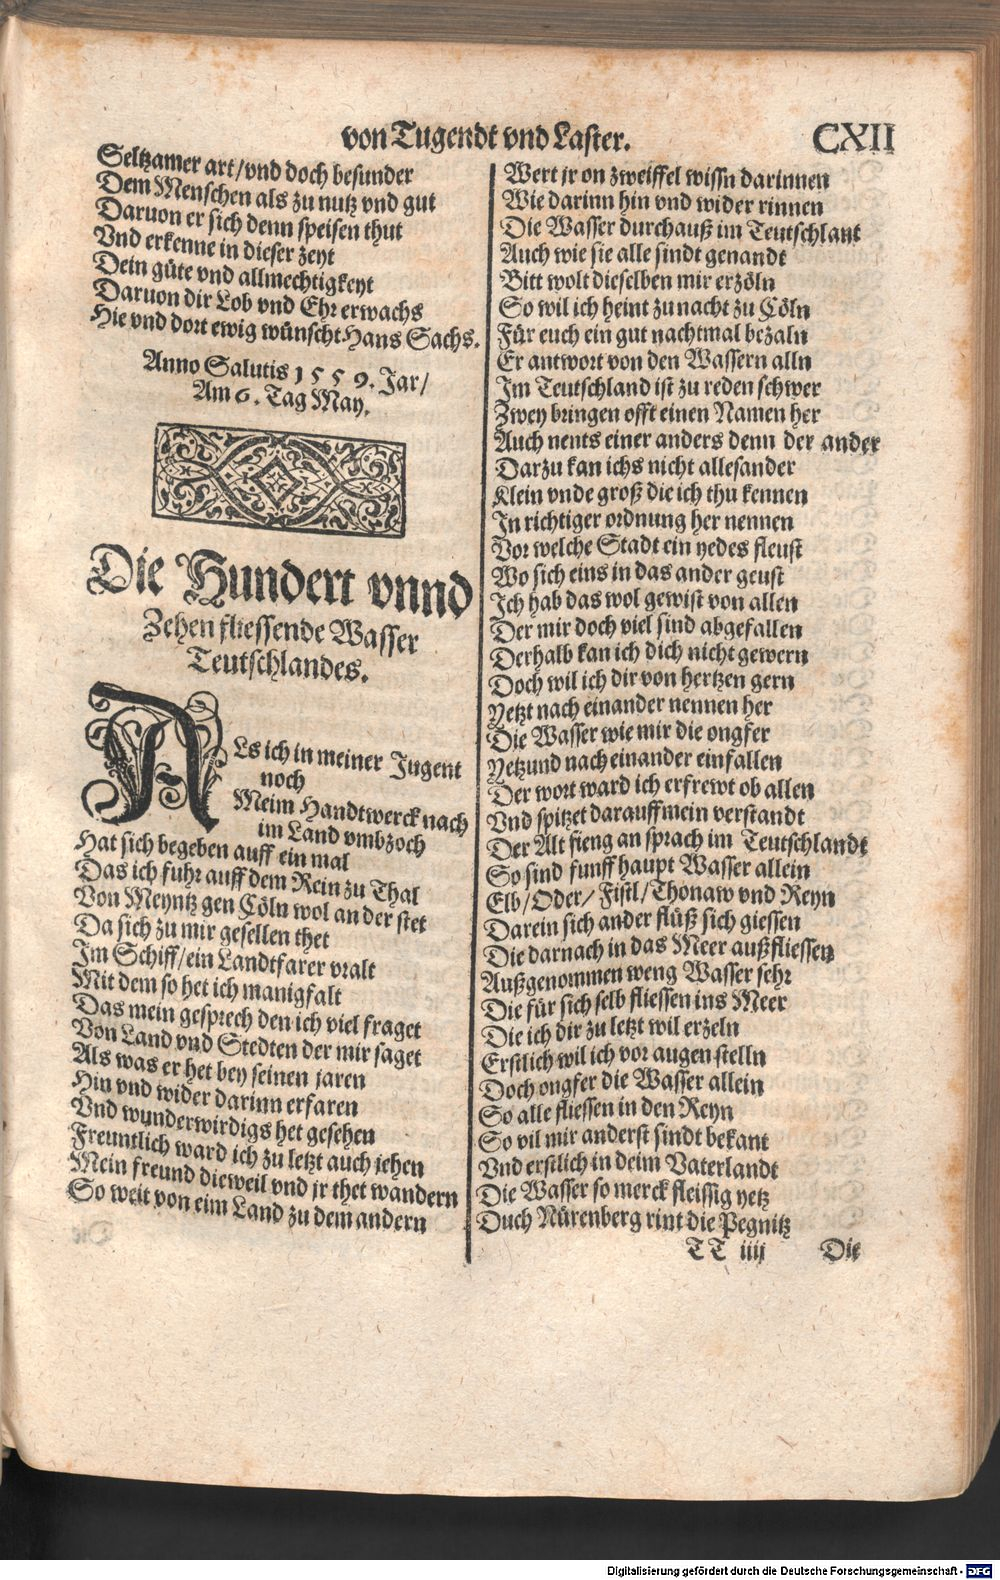 von Tugendt vnd Laster.
CXII
Seltzamer art/vnd doch besunder
Dem Menschen als zu nutz vnd gut
Daruon er sich denn speisen thut
Vnd erkenne in dieser zeyt
Dein güte vnd allmechtigkeyt
Daruon dir Lob vnd Ehr erwachs
Hie vnd dort ewig wünscht Hans Sachs.
Anno Salutis 1559. Jar/
Am 6. Tag May.
Die Hundert vnnd
Zehen fliessende Wasser
Teutschlandes.
ALs ich in meiner Jugent
noch
Meim Handtwerck nach
im Land vmbzoch
Hat sich begeben auff ein mal
Das ich fuhr auff dem Rein zu Thal
Von Meyntz gen Cöln wol an der stet
Da sich zu mir gesellen thet
Im Schiff/ein Landtfarer vralt
Mit dem so het ich manigfalt
Das mein gesprech den ich viel fraget
Von Land vnd Stedten der mir saget
Als was er het bey seinen jaren
Hin vnd wider darinn erfaren
Vnd wunderwirdigs het gesehen
Freuntlich ward ich zu letzt auch jehen
Mein freund dieweil vnd jr thet wandern
So weit von eim Land zu dem andern
Wert jr on zweiffel wissn darinnen
Wie darinn hin vnd wider rinnen
Die Wasser durchauß im Teutschlant
Auch wie sie alle sindt genandt
Bitt wolt dieselben mir erzöln
So wil ich heint zu nacht zu Cöln
Für euch ein gut nachtmal bezaln
Er antwort von den Wassern alln
Im Teutschland ist zu reden schwer
Zwey bringen offt einen Namen her
Auch nents einer anders denn der ander
Darzu kan ichs nicht allesander
Klein vnde groß die ich thu kennen
In richtiger ordnung her nennen
Vor welche Stadt ein yedes fleust
Wo sich eins in das ander geust
Ich hab das wol gewist von allen
Der mir doch viel sind abgefallen
Derhalb kan ich dich nicht gewern
Doch wil ich dir von hertzen gern
Yetzt nach einander nennen her
Die Wasser wie mir die ongfer
Yetzund nach einander einfallen
Der wort ward ich erfrewt ob allen
Vnd spitzet darauff mein verstandt
Der Alt fieng an sprach im Teutschlandt
So sind funff haupt Wasser allein
Elb/Oder/Fistl/Thonaw vnd Reyn
Darein sich ander flüß sich giessen
Die darnach in das Meer außfliessen
Außgenommen weng Wasser sehr
Die für sich selb fliessen ins Meer
Die ich dir zu letzt wil erzeln
Erstlich wil ich vor augen stelln
Doch ongfer die Wasser allein
So alle fliessen in den Reyn
So vil mir anderst sindt bekant
Vnd erstlich in deim Vaterlandt
Die Wasser so merck fleissig yetz
Duch Nürenberg rint die Pegnitz
TT iiij
Die
Digitalisierung gefördert durch die Deutsche Forschungsgemeinschaft - DFG